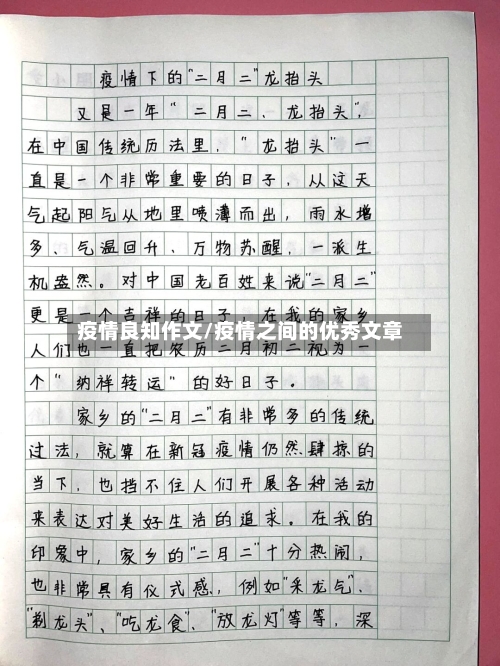 疫情下的"二月二"龙抬头
又是一年"二月二、龙抬头",
在中国传统历法里,"龙抬头"一
直是一个非常重要的日子,从这天
气起阳气从地里喷薄而出,雨水增
多、气温回升、万物苏醒,一派生
机盎然。对中国老百姓来说"二月二"
更是一个吉祥的日子,在我的家乡
疫情良知作文/疫情之间的优秀文章
人们也一直把农历二月初二视为一
个"纳祥转运"的好日子。
家乡的"二月二"有非常多的传统
过法,就算在新冠疫情仍然肆掠的
当下,也挡不住人们开展各种活动
来表达对美好生活的追求。在我的
印象中,家乡的"二月二"十分热闹,
也非常具有仪式感,例如"采龙气"、
"剃龙头"、"吃龙食"、"放龙灯"等等,深